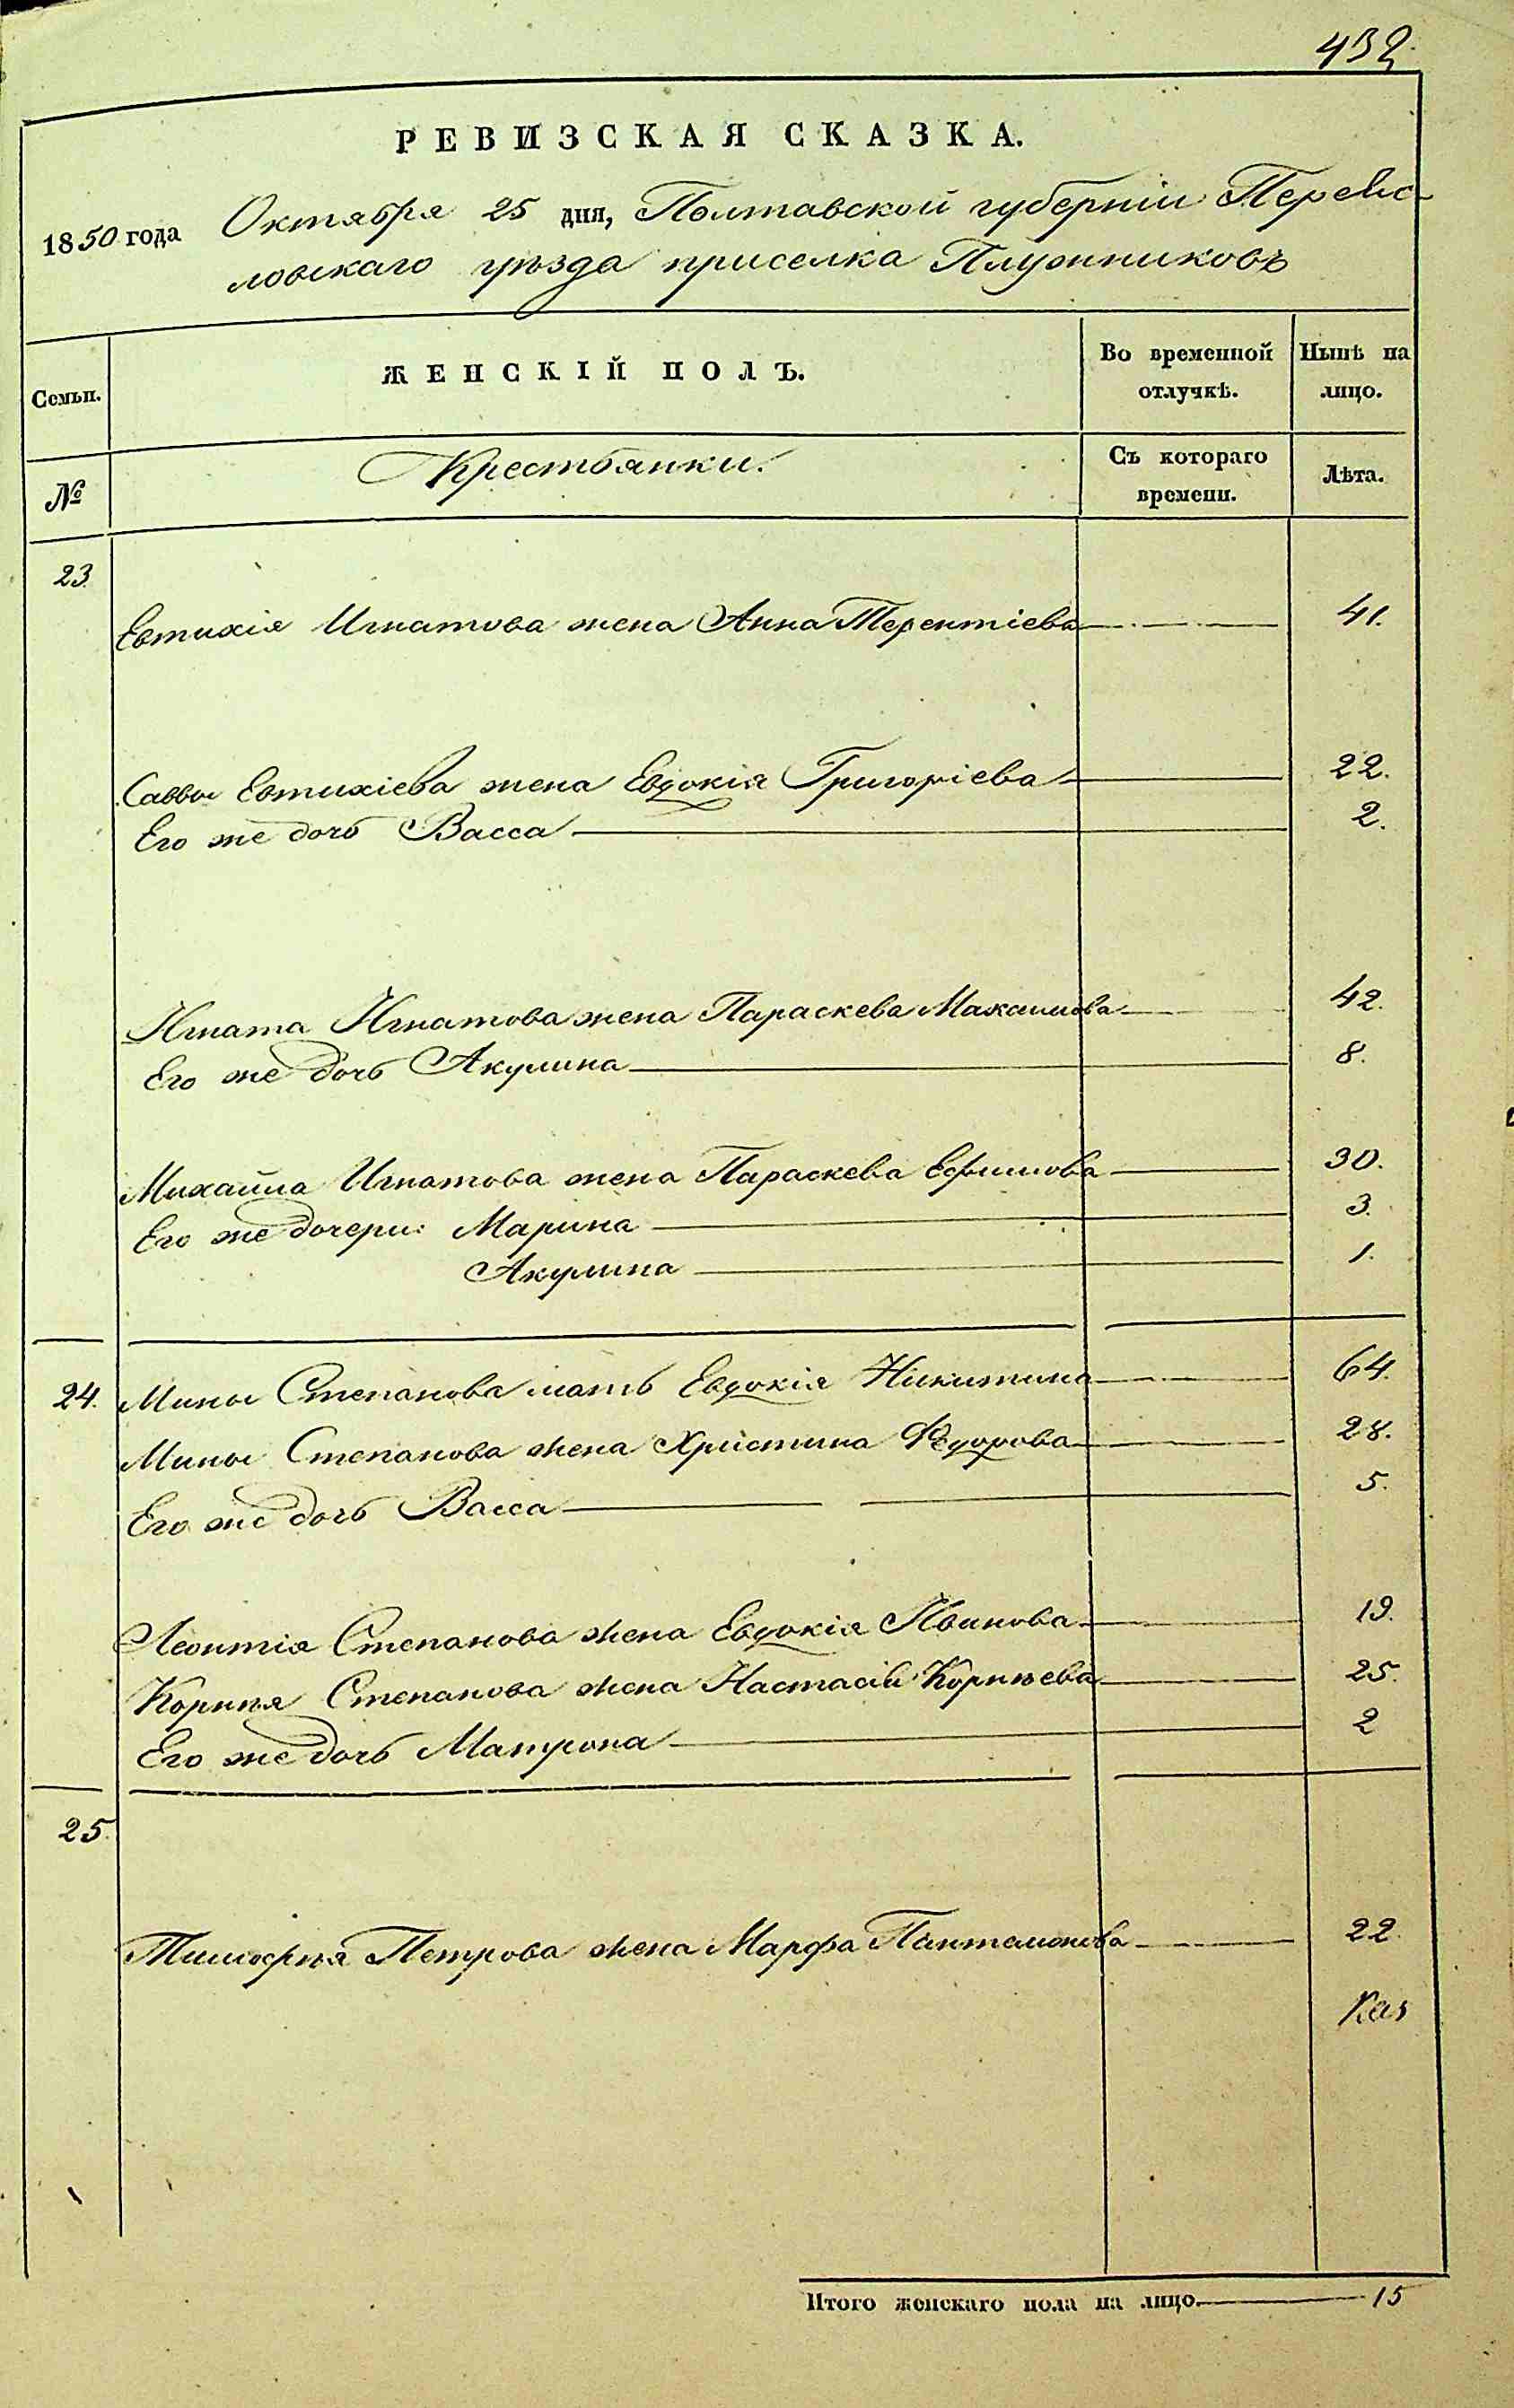 432.
РЕВИЗСКАЯ СКАЗКА.
1850 года Октября 25 дня, Полтавской губерніи Переяс-
ловскаго уѣзда приселка Плужниковъ
Семьи.
ЖЕНСКІЙ ПОЛЪ.
Во временной отлучкѣ.
Нынѣ на лицо.
№
Крестьянки.
Съ котораго времени.
Лѣта.
23.
Евтихія Игнатова жена Анна Терентіева 41.
Саввы Евтихіева жена Евдокія Григоріева 22.
Его же дочь Васса 2.
Игната Игнатова жена Параскева Максимова 42.
Его же дочь Акулина 8.
Михайла Игнатова жена Параскева Ефимова 30.
Его же дочери: Марина 3.
Акулина 1.
24. Мины Степанова мать Евдокія Никитина 64.
Мины Степанова жена Христина Федорова 28.
Его же дочь Васса 5.
Леонтія Степанова жена Евдокія Иванова 19.
Корнія Степанова жена Настасія Корнѣева 25.
Его же дочь Матрона 2
25.
Тимофѣя Петрова жена Марфа Пантамонова 22.
Итого женскаго пола на лицо. 15